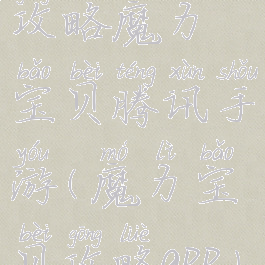 攻略魔力
bǎo bèi téng xùn shǒu
宝贝腾讯手
yóu mó lì bǎo
游(魔力宝
bèi gōng lüè
贝攻略QPP)